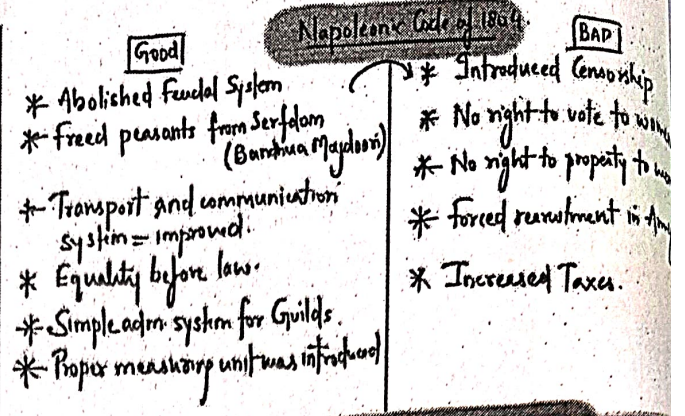 Napoleon's Code of 1804.
Good
* Abolished Feudal System
* Freed peasants from Serfdom
(Bandhua Majdoori)
* Transport and communication
system = improved.
* Equality before law.
* Simple adm. system for Guilds.
* Proper measuring unit was introduced
BAD
* Introduced Censorship
* No right to vote to
* No right to property to
* Forced recruitment in
* Increased Taxes.